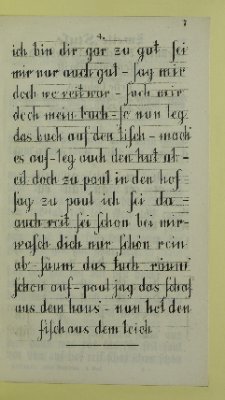 7
4.
ich bin dir gar zu gut – sei
mir nur auch gut – sag mir
doch wo reit war – such mir
doch mein buch – so nun leg
das buch auf den tisch – mach
es auf – leg auch den hut ab –
eil doch zu paul in den hof
sag zu paul ich sei da –
auch reit sei schon bei mir –
wasch dich nur schön rein
ab saum das tuch räum
schon auf – paul jag das schaf
aus dem haus – nun hol den
fisch aus dem teich